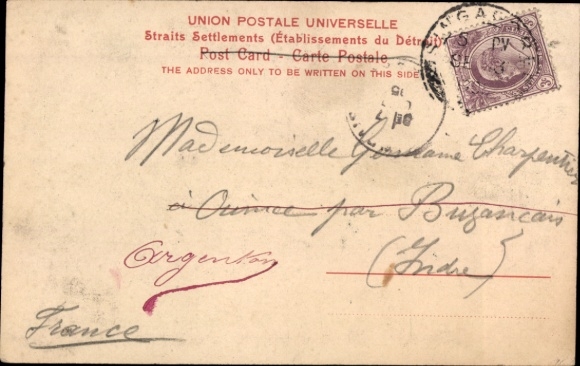 UNION POSTALE UNIVERSELLE
Straits Settlements (Établissements du Détroit)
Post Card - Carte Postale
THE ADDRESS ONLY TO BE WRITTEN ON THIS SIDE
SINGAPORE
Mademoiselle Charpentier
à par Buzancais
Argenton
(Indre)
France